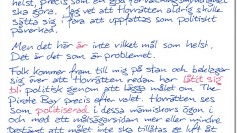 helst, precis som en god förvaltningsmyndighet
ska göra. Jag vet att hovrätten aldrig skulle
sätta sig i fara att uppfattas som politiskt
påverkad.
Men det här är inte vilket mål som helst.
Det är det som är problemet.
Folk kommer fram till mig på stan och beklagar
sig över att Hovrätten redan låtit sig
bli politisk genom att lägga målet om The
Pirate Bay precis efter valet. Hovrätten ses
som politiserad i dessa människors ögon,
och med ett målsägarsidan mer eller mindre
bestämt att målet inte ska tillåtas en luft åt